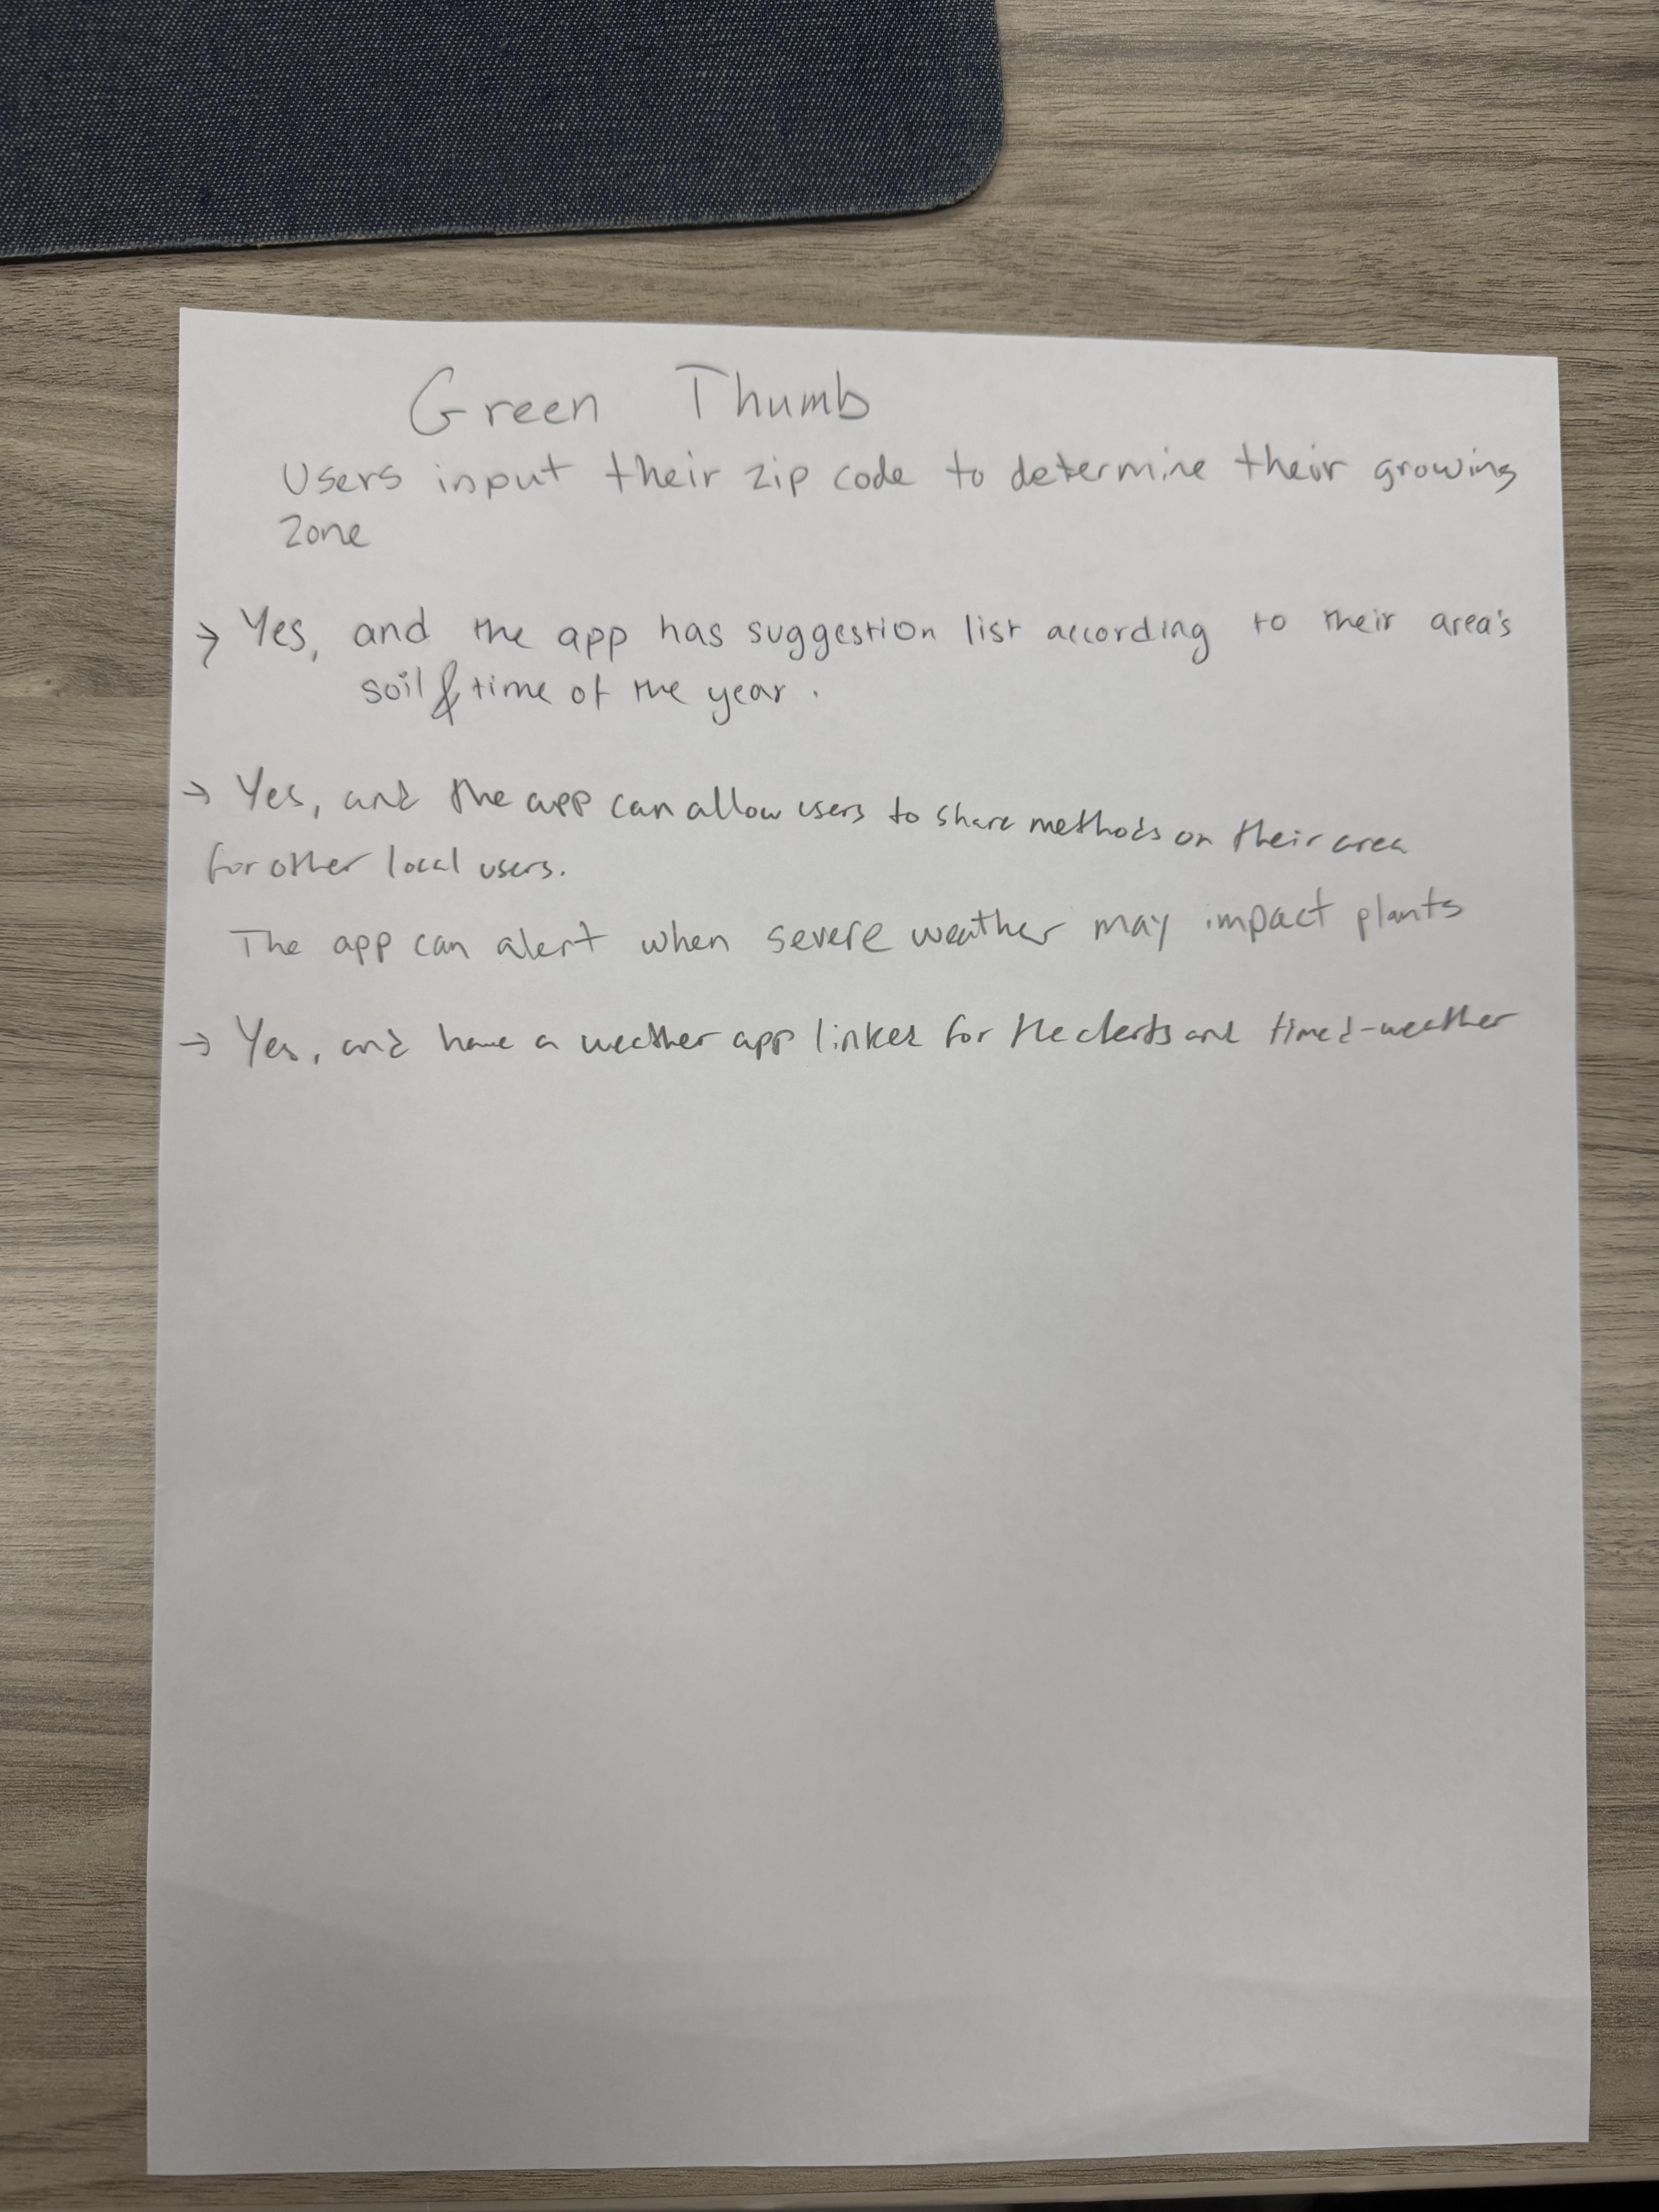 Green Thumb
Users input their zip code to determine their growing
zone
→ Yes, and the app has suggestion list according to their area's
soil & time of the year.
→ Yes, and the app can allow users to share methods on their area
for other local users.
The app can alert when severe weather may impact plants
→ Yes, and have a weather app linked for the alerts and timed-weather